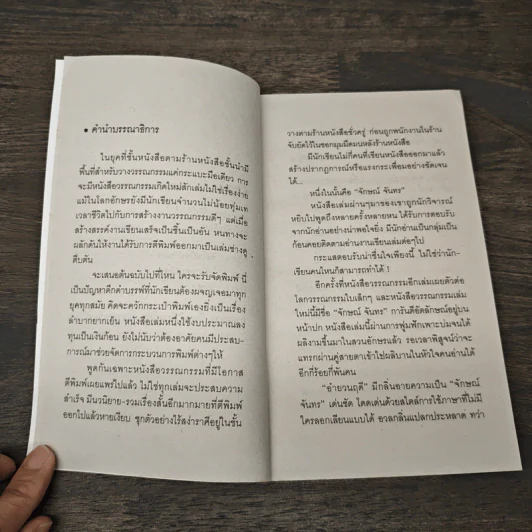 • คำนำบรรณาธิการ
ในยุคที่ชั้นหนังสือตามร้านหนังสือชั้นนำมี
พื้นที่สำหรับวางวรรณกรรมแค่กระแบะมือเดียว การ
จะมีหนังสือวรรณกรรมเกิดใหม่สักเล่มไม่ใช่เรื่องง่าย
แม้ในโลกอักษรยังมีนักเขียนจำนวนไม่น้อยทุ่มเท
เวลาชีวิตไปกับการสร้างงานวรรณกรรมดีๆ แต่เมื่อ
สร้างสรรค์งานเขียนเสร็จเป็นชิ้นเป็นอัน หนทางจะ
ผลักดันให้งานได้รับการตีพิมพ์ออกมาเป็นเล่มช่างดู
ตีบตัน
จะเสนอต้นฉบับไปที่ไหน ใครจะรับจัดพิมพ์ นี่
เป็นปัญหาดึกดำบรรพ์ที่นักเขียนต้องผจญเจอมาทุก
ยุคทุกสมัย คิดจะควักกระเป๋าพิมพ์เองยิ่งเป็นเรื่อง
ลำบากยากเย็น หนังสือเล่มหนึ่งใช้งบประมาณลง
ทุนเป็นเงินก้อน ยังไม่นับว่าต้องอาศัยคนมีประสบ-
การณ์มาช่วยจัดการกระบวนการพิมพ์ต่างๆให้
พูดกันเฉพาะหนังสือวรรณกรรมที่มีโอกาส
ตีพิมพ์เผยแพร่ไปแล้ว ไม่ใช่ทุกเล่มจะประสบความ
สำเร็จ มีนวนิยาย-รวมเรื่องสั้นอีกมากมายที่ตีพิมพ์
ออกไปแล้วหายเงียบ ซุกตัวอย่างไร้สง่าราศีอยู่ในชั้น
วางตามร้านหนังสือชั่วครู่ ก่อนถูกพนักงานในร้าน
จับยัดไว้ในซอกมุมมืดมนหลังร้านหนังสือ
มีนักเขียนไม่กี่คนที่เขียนหนังสือออกมาแล้ว
สร้างปรากฏการณ์หรือแรงกระเพื่อมอย่างชัดเจน
ได้...
หนึ่งในนั้นคือ “จักษณ์ จันทร”
หนังสือเล่มผ่านๆมาของเขาถูกนักวิจารณ์
หยิบไปพูดถึงหลายครั้งหลายหน ได้รับการตอบรับ
จากนักอ่านอย่างน่าพอใจยิ่ง มีนักอ่านเป็นกลุ่มเป็น
ก้อนคอยติดตามอ่านงานเขียนเล่มต่อๆไป
กระแสตอบรับน่าชื่นใจเพียงนี้ ไม่ใช่ว่านัก-
เขียนคนไหนก็สามารถทำได้ !
อีกครั้งที่หนังสือวรรณกรรมอีกเล่มเผยตัวต่อ
โลกวรรณกรรมใบเล็กๆ และหนังสือวรรณกรรมเล่ม
ใหม่นี้มีชื่อ “จักษณ์ จันทร” การันตีอัตลักษณ์อยู่บน
หน้าปก หนังสือเล่มนี้ผ่านการพูมฟักเพาะบ่มจนได้
ผลิงามขึ้นมาในสวนอักษรแล้ว รอเวลาพิสูจน์ว่าจะ
แทรกผ่านคู่สายตาเข้าไปผลิบานในหัวใจคนอ่านได้
อีกกี่ร้อยกี่พันคน
“อำยวนฤดี” มีกลิ่นอายความเป็น “จักษณ์
จันทร” เด่นชัด โดดเด่นด้วยสไตล์การใช้ภาษาที่ไม่มี
ใครลอกเลียนแบบได้ อวลกลิ่นแปลกประหลาด ทว่า